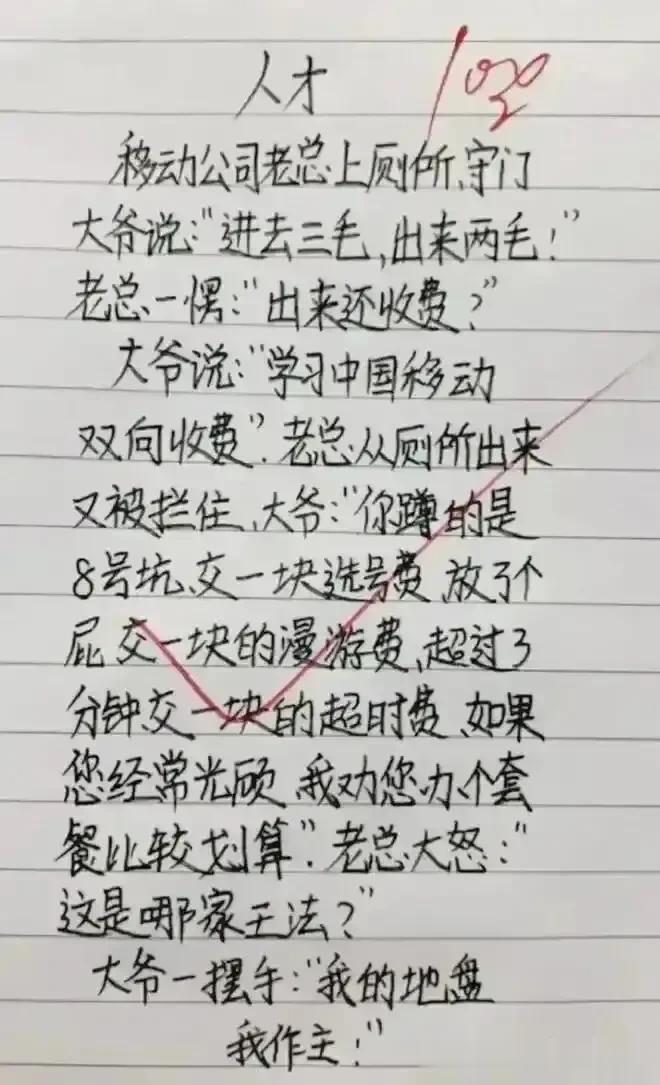 人才
100
移动公司老总上厕所、守门
大爷说:"进去三毛,出来两毛!"
老总一愣:"出来还收费?"
大爷说:"学习中国移动
双向收费".老总从厕所出来
又被拦住、大爷:"你蹲的是
8号坑、交一块选号费、放了个
屁交一块的漫游费、超过3
分钟交一块的超时费、如果
您经常光顾、我劝您办个套
餐比较划算".老总大怒:"
这是哪家王法?"
大爷一摆手:"我的地盘
我作主!"